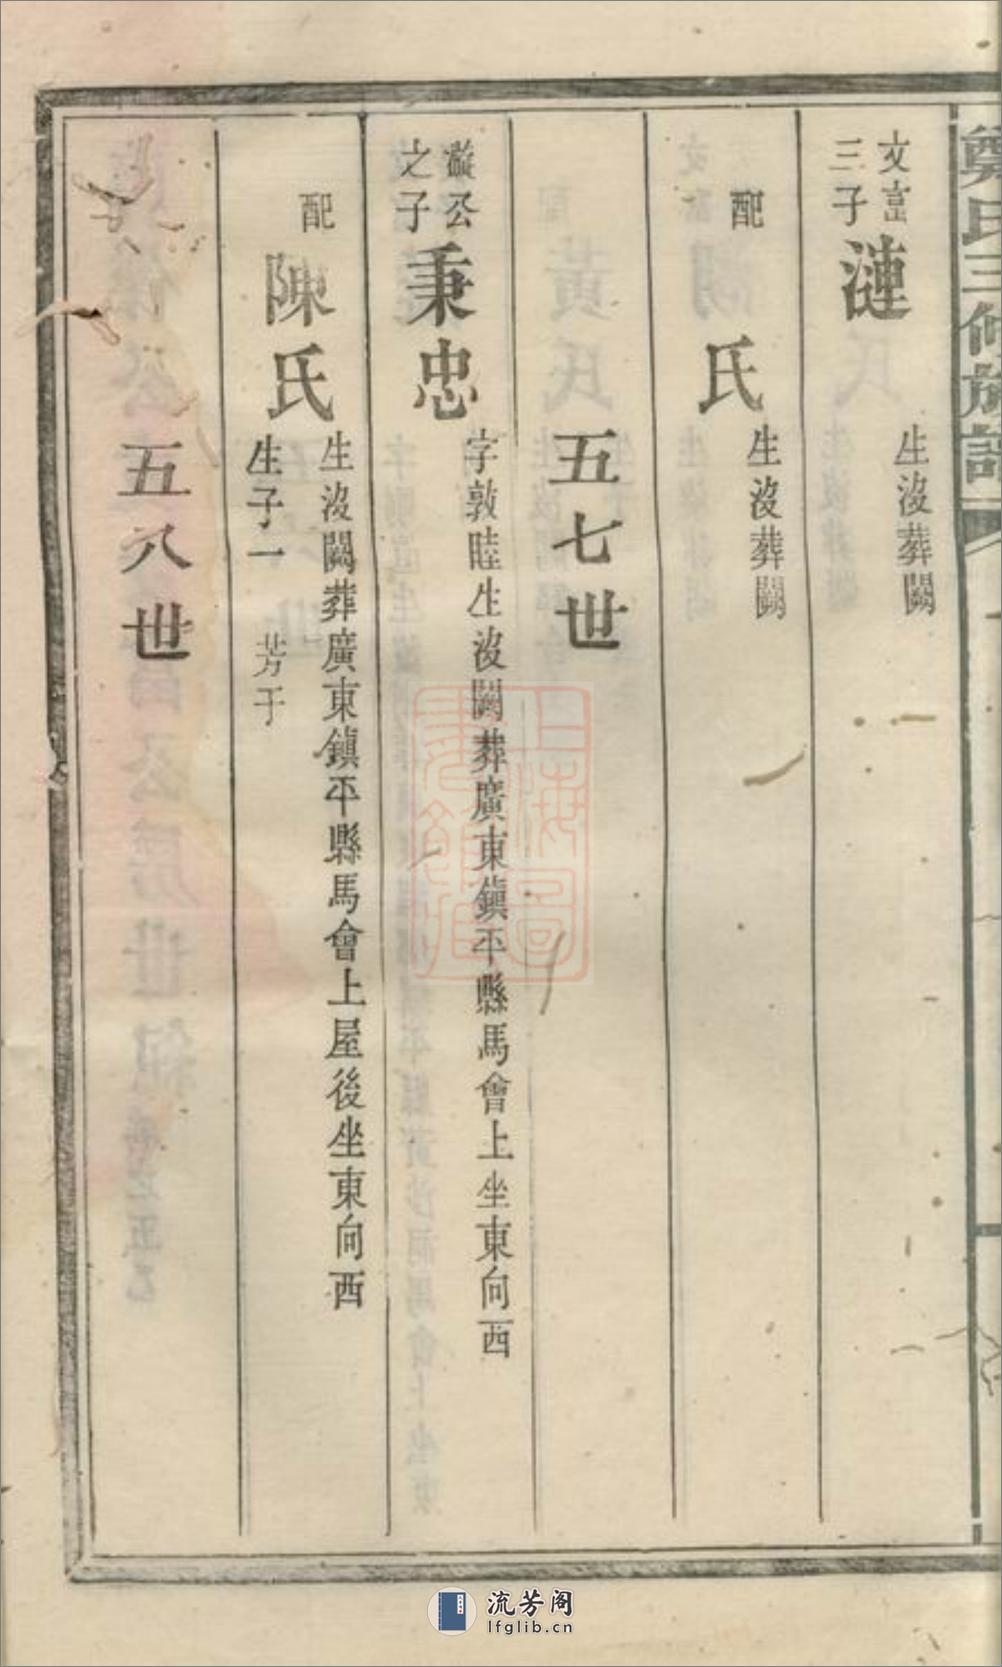 鄭氏三修族譜
文富
三子
漣
生沒葬闕
配
氏
生沒葬闕
五七世
漋公
之子
秉忠
字敦睦生沒闕葬廣東鎮平縣馬會上坐東向西
配
陳氏
生沒闕葬廣東鎮平縣馬會上屋後坐東向西
生子一 芳于
五八世
上海圖書館藏
流芳阁
lfglib.cn